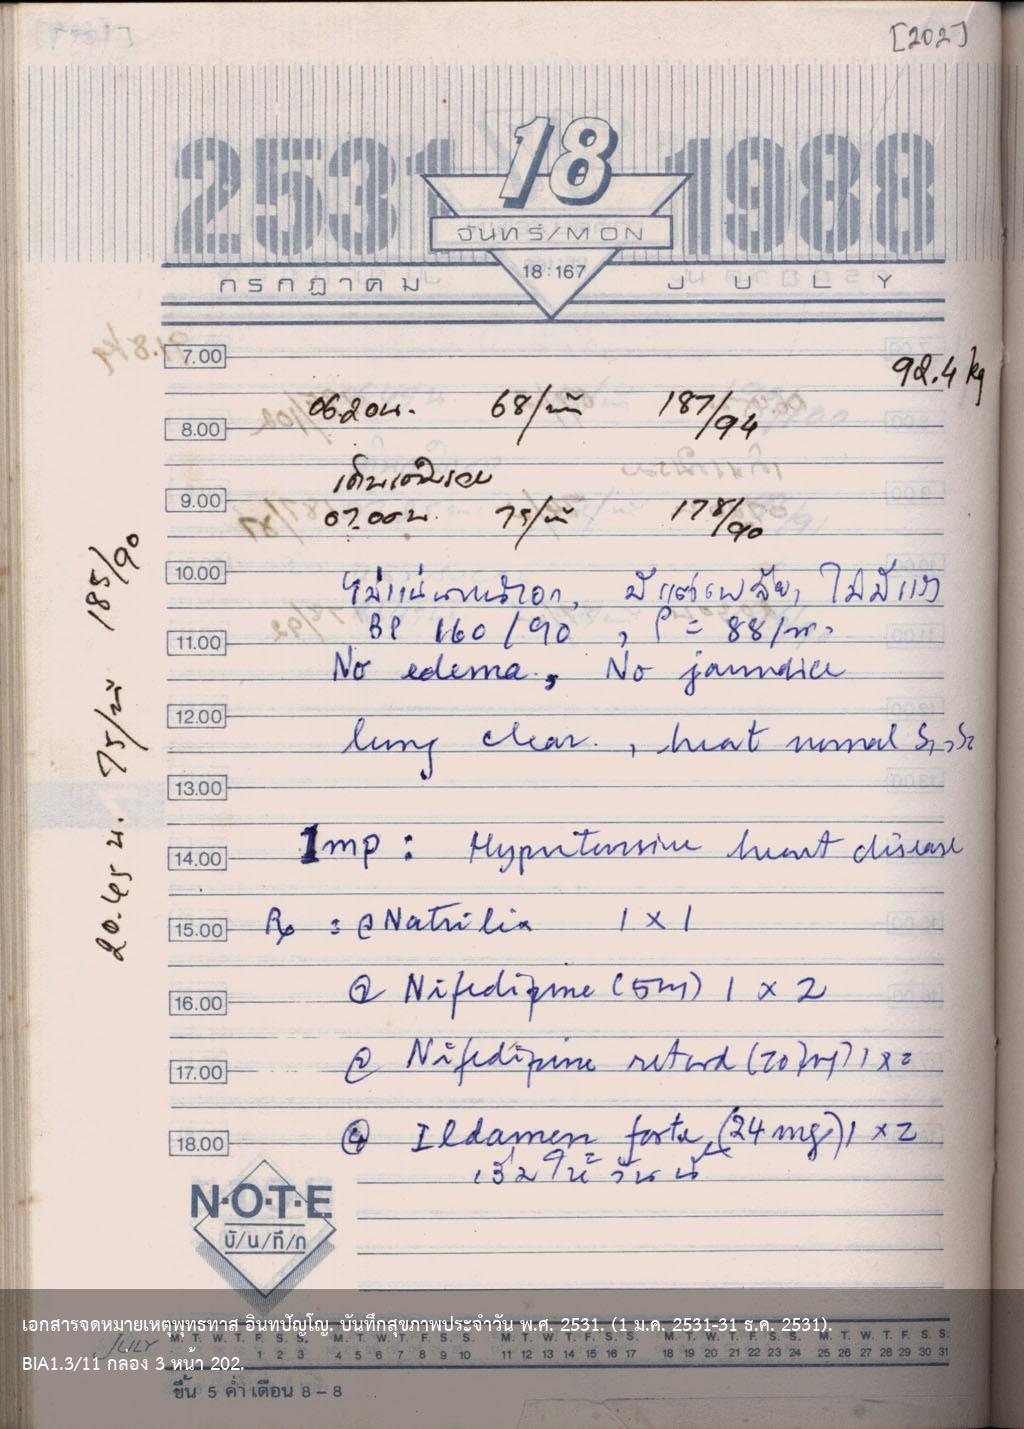 [202]
2531 18 1988
จันทร์/MON
18:167
กรกฎาคม JULY
7.00
92.4 kg
06.20น. 68/นาที 187/94
8.00
เดินเต็มรอบ
9.00
07.00น. 75/นาที 178/90
10.00
ไม่แน่นหน้าอก, มีแต่เพลีย, ไม่มีแรง
BP 160/90, P = 88/m.
11.00
No edema, No jaundice
12.00
lung clear, heart normal S1, S2
13.00
Imp : Hypertensive heart disease
14.00
15.00 Rx : ① Natrilix 1 x 1
16.00 ② Nifedipine (5mg) 1 x 2
17.00 Nifedipine retard (20mg) 1 x 2
18.00 ④ Ildamen forte (24 mg) 1 x 2
เริ่มให้วันนี้
20.45 น. 75/นาที 185/90
N·O·T·E
บั/น/ทึ/ก
เอกสารจดหมายเหตุพุทธทาส อินทปัญโญ. บันทึกสุขภาพประจำวัน พ.ศ. 2531. (1 ม.ค. 2531-31 ธ.ค. 2531).
JULY M. T. W. T. F. S. S. M. T. W. T. F. S. S. M. T. W. T. F. S. S. M. T. W. T. F. S. S. M. T. W. T. F. S. S.
1 2 3 4 5 6 7 8 9 10 11 12 13 14 15 16 17 18 19 20 21 22 23 24 25 26 27 28 29 30 31
BIA1.3/11 กล่อง 3 หน้า 202.
ขึ้น 5 ค่ำ เดือน 8 – 8